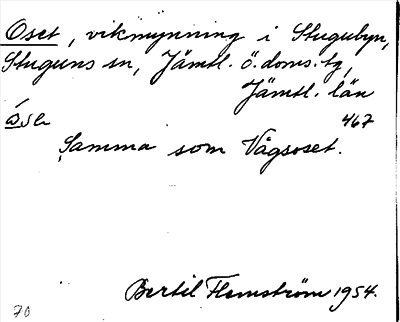 Oset, vikmynning i Stugubyn,
Stuguns sn, Jämtl. ö. doms:tg,
Jämtl. län
467
Samma som Vågsoset.
Bertil Flemström 1954.
70